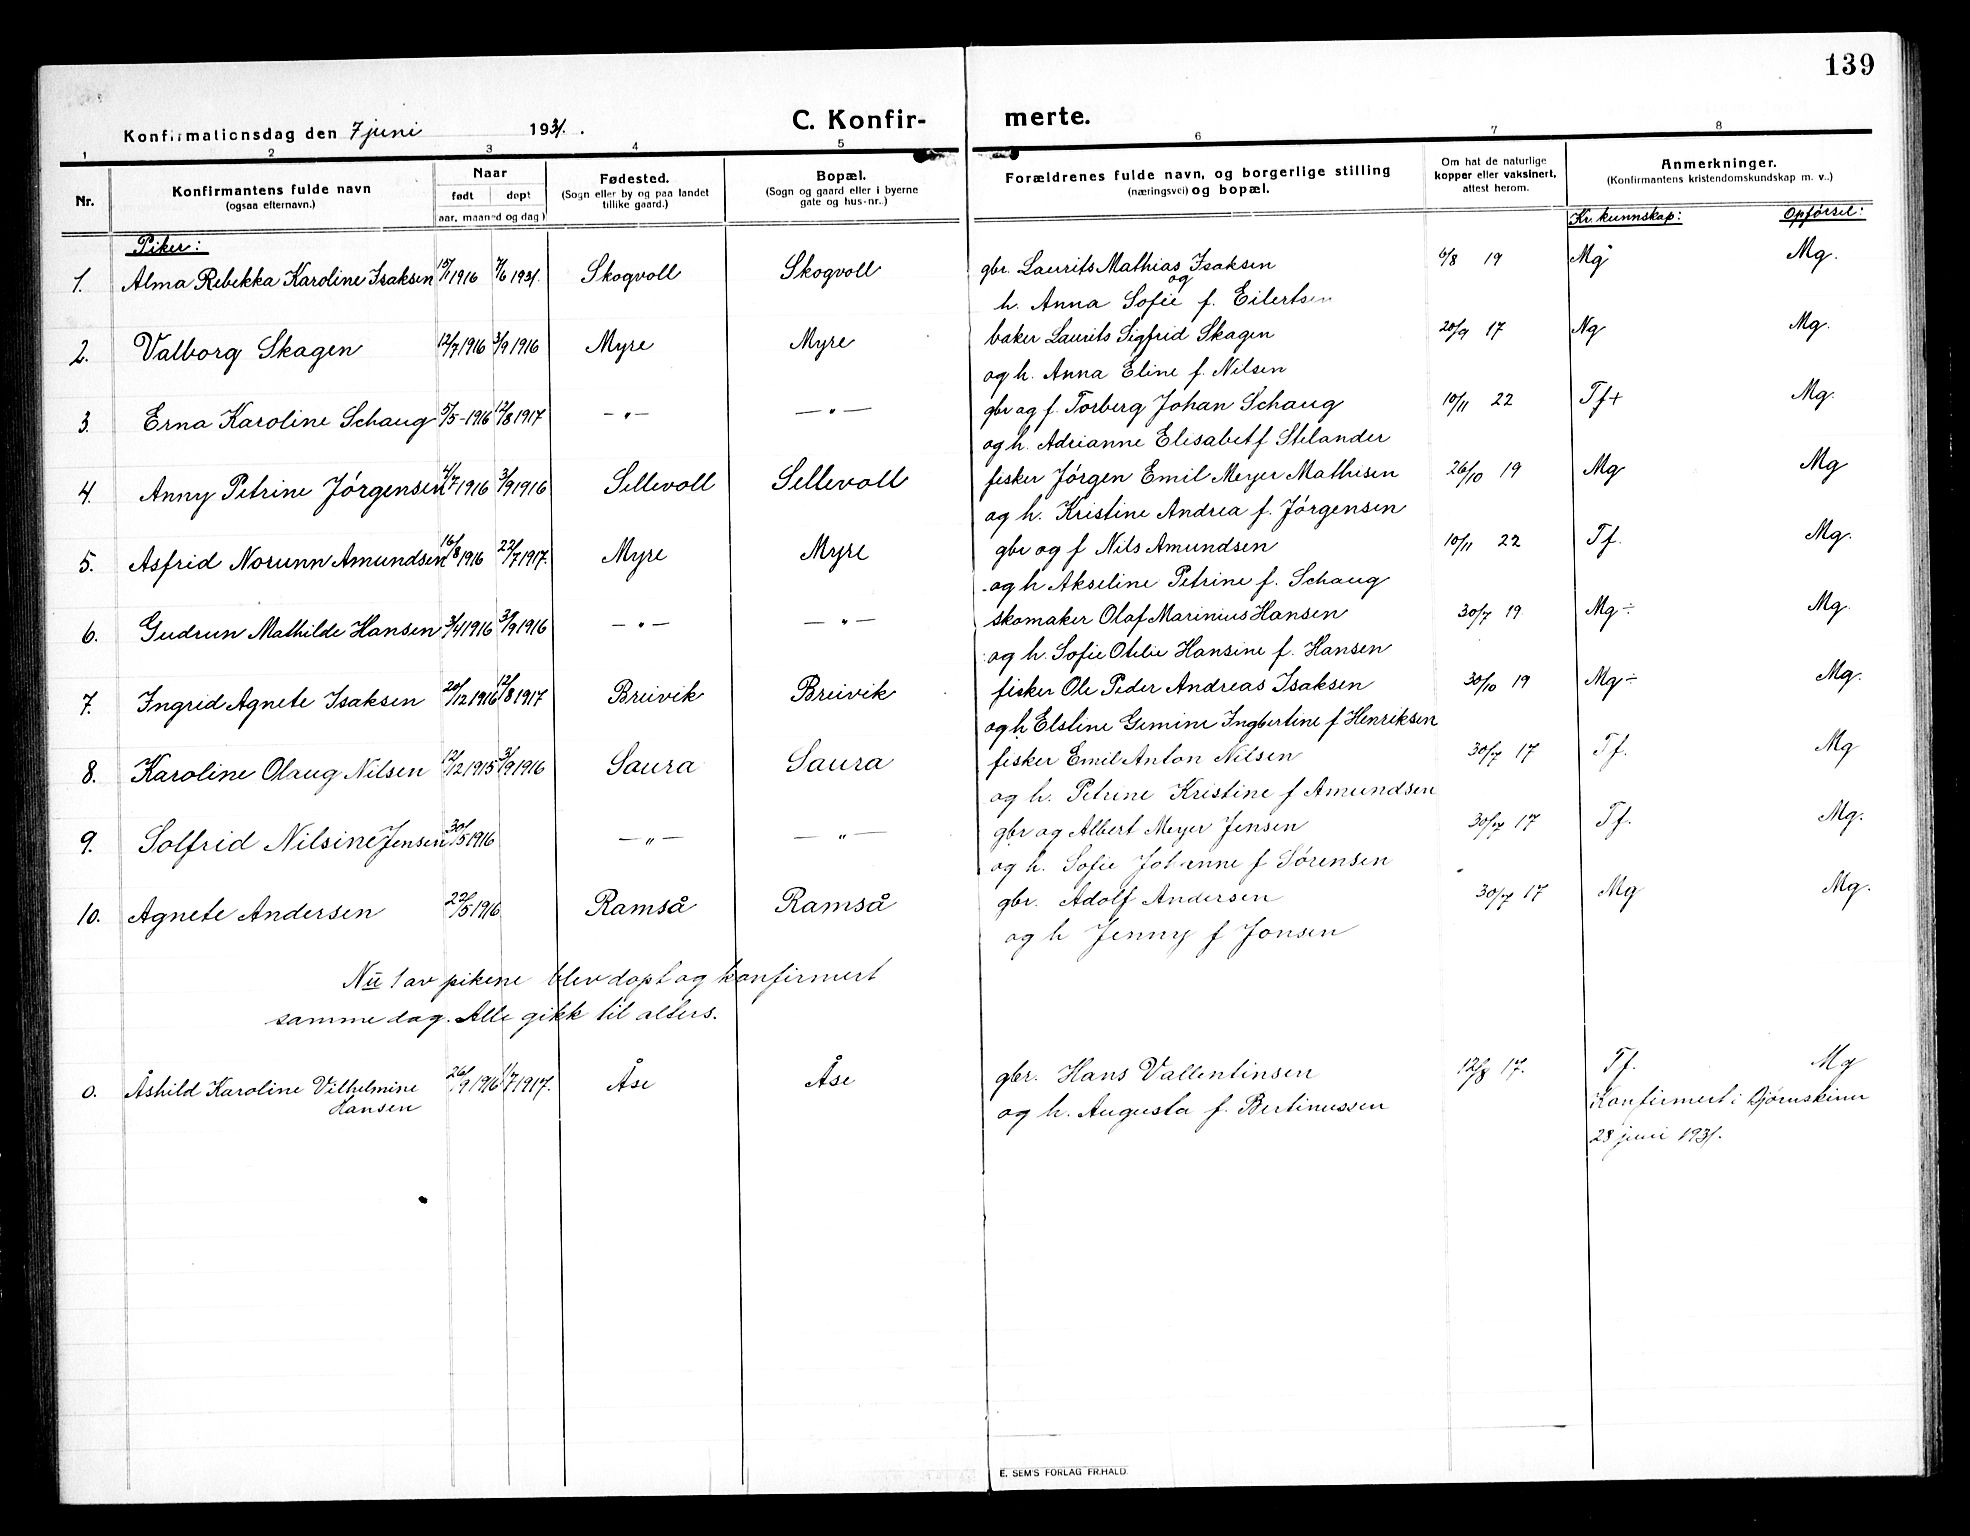 139
Konfirmationsdag den 7 juni 1931.
C. Konfir- merte.
1 2 3 4 5 6 7 8
Nr.
Konfirmantens fulde navn
(ogsaa efternavn.)
Naar
født døpt
aar, maaned og dag)
Fødested.
(Sogn eller by og paa landet
tillike gaard.)
Bopæl.
(Sogn og gaard eller i byerne
gate og hus-nr.)
Forældrenes fulde navn, og borgerlige stilling
(næringsvei) og bopæl.
Om hat de naturlige
kopper eller vaksinert,
attest herom.
Anmerkninger.
(Konfirmantens kristendomskundskap m. v..)
Kr. kunnskap: Opførsel:
Piker:
1. Alma Rebekka Karoline Isaksen 15/1 1916 7/6 1931. Skogvoll Skogvoll gbr. Laurits Mathias Isaksen 6/8 19 Mg Mg.
og
h. Anna Sofie f. Eilertsen
2. Valborg Skagen 12/7 1916 3/9 1916 Myre Myre baker Laurits Sigfrid Skagen 20/9 17 Ng Mg.
og h. Anna Eline f. Nilsen
3. Erna Karoline Schaug 5/5-1916 12/8 1917 —〃— —〃— gbr og f. Torberg Johan Schaug 10/11 22 Tf+ Mg.
og h. Adrianne Elisabet f Stelander
4. Anny Petrine Jørgensen 4/7 1916 3/9 1916 Sellevoll Sellevoll fisker Jørgen Emil Meyer Mathisen 26/10 19 Mg Mg
og h. Kristine Andrea f. Jørgensen
5. Asfrid Norunn Amundsen 16/8 1916 22/7 1917. Myre Myre gbr og f Nils Amundsen 10/11 22 Tf. Mg.
og h Akseline Petrine f. Schaug
6. Gudrun Mathilde Hansen 3/4 1916 3/9 1916 —〃— —〃— skomaker Olaf Marinius Hansen 30/7 19 Mg ÷ Mg.
og h. Sofie Otelie Hansine f. Hansen
7. Ingrid Agnete Isaksen 20/12 1916 12/8 1917 Breivik Breivik fisker Ole Peder Andreas Isaksen 30/10 19 Mg ÷ Mg.
og h Elstine Gemine Ingbertine f Henriksen
8. Karoline Olaug Nilsen 12/12 1915 3/9 1916 Saura Saura fisker Emil Anton Nilsen 30/7 17 Tf. Mg
og h. Petrine Kristine f Amundsen
9. Solfrid Nilsine Jensen 30/5 1916 —〃— —〃— gbr og Albert Meyer Jensen 30/7 17 Tf. Mg.
og h. Sofie Johanne f Sørensen
10. Agnete Andersen 22/5 1916 Ramså Ramså gbr. Adolf Andersen 30/7 17 Mg Mg.
og h Jenny f Jonsen
Nu 1 av pikene blev døpt og konfirmert
samme dag. Alle gikk til alters.
0. Åshild Karoline Vilhelmine 26/9 1916 1/7 1917. Åse Åse gbr. Hans Vallentinsen 12/8 17. Tf. Mg
Hansen og h. Augusta f. Bertinussen Konfirmert i Bjørnskinn
28 juni 1931.
E. SEM'S FORLAG FR.HALD